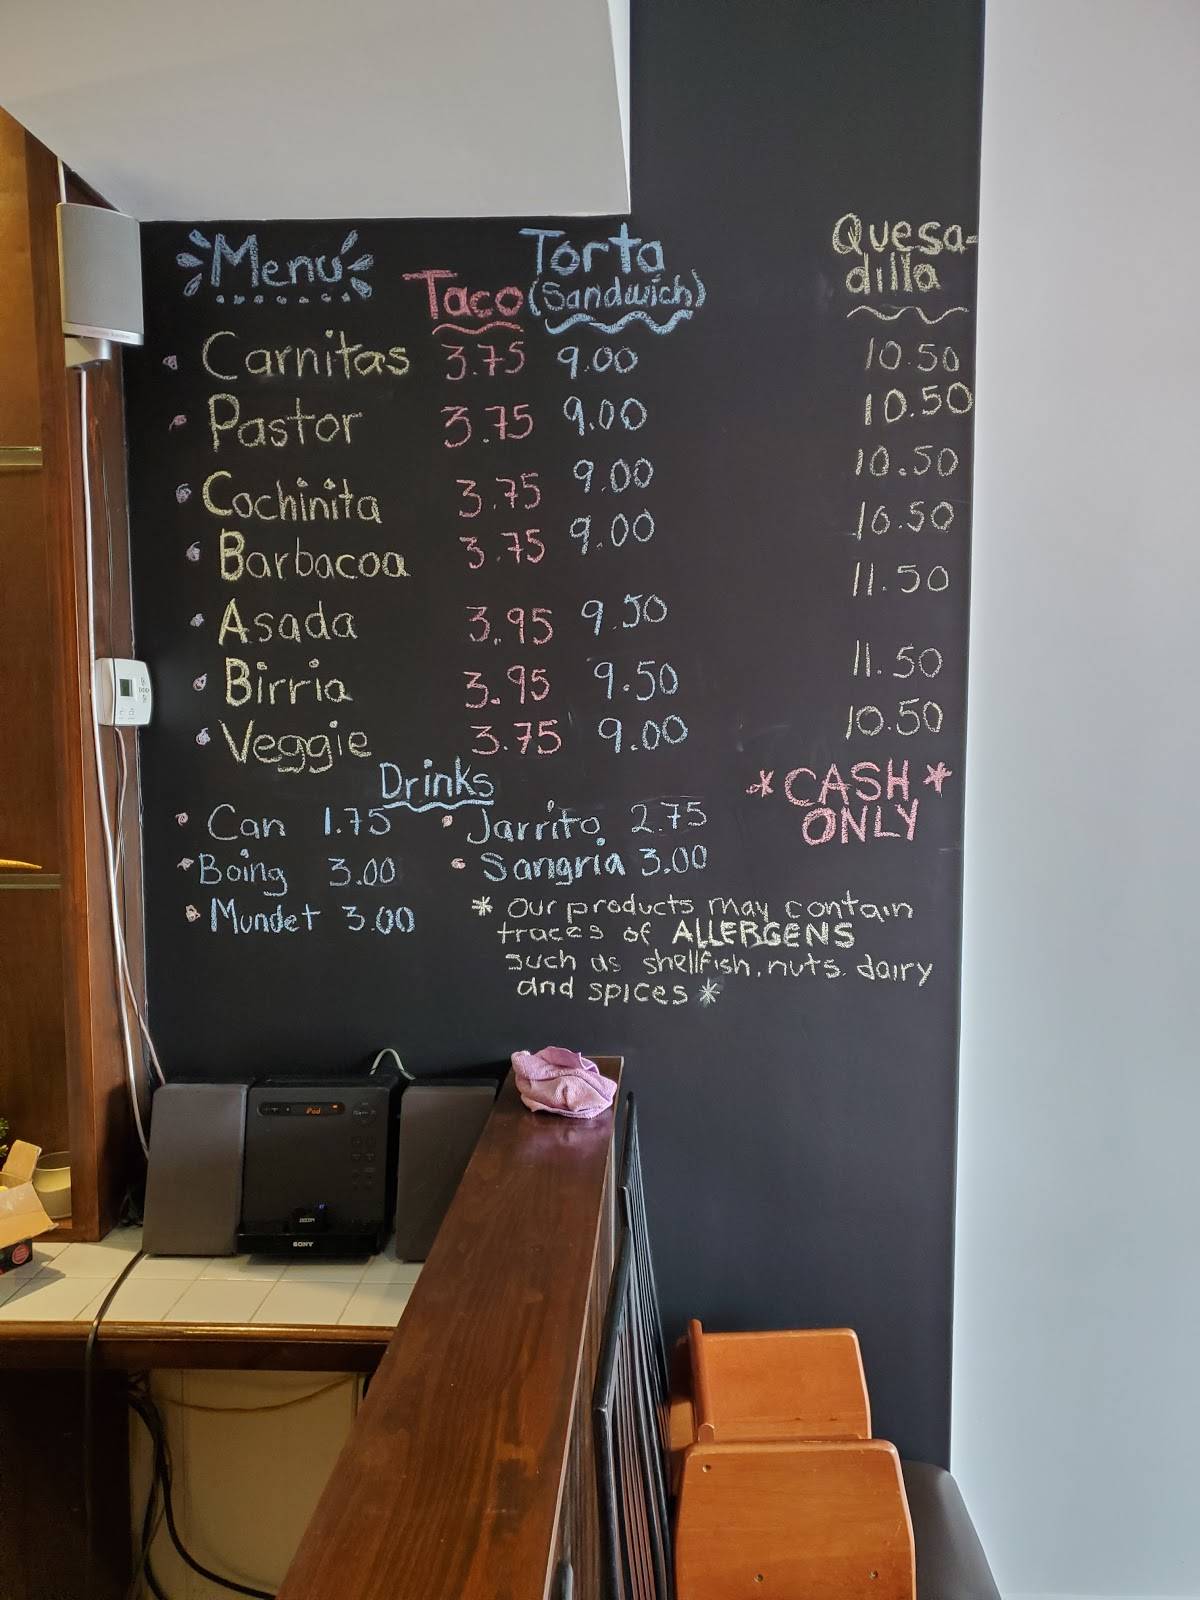 Menu Taco Torta (Sandwich) Quesa-
dilla
Carnitas 3.75 9.00 10.50
Pastor 3.75 9.00 10.50
Cochinita 3.75 9.00 10.50
Barbacoa 3.75 9.00 10.50
Asada 3.95 9.50 11.50
Birria 3.95 9.50 11.50
Veggie 3.75 9.00 10.50
Drinks
Can 1.75 Jarrito 2.75
Boing 3.00 Sangria 3.00
Mundet 3.00
*CASH*
ONLY
* our products may contain
traces of ALLERGENS
such as shellfish, nuts. dairy
and spices *
iPod
SONY